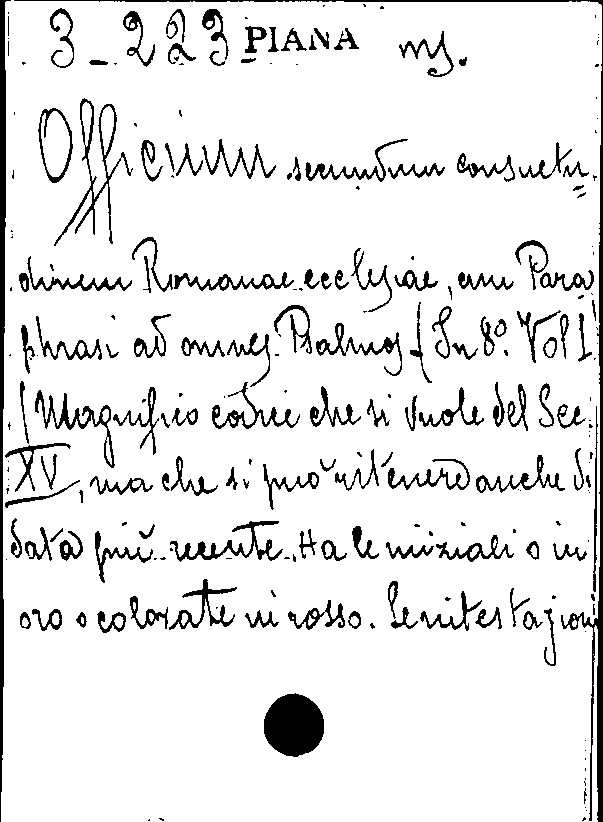 3_223 PIANA ms.
Officium secundum consuetu=
dinem Romanae ecclesiae, cum Para
phrasi ad omnes Psalmos. (In 8º. Vol 1
(Magnifico codice che si vuole del Sec.
XV, ma che si può ritenere anche di
data più recente. Ha le iniziali o in
oro o colorate in rosso. Le intestazioni